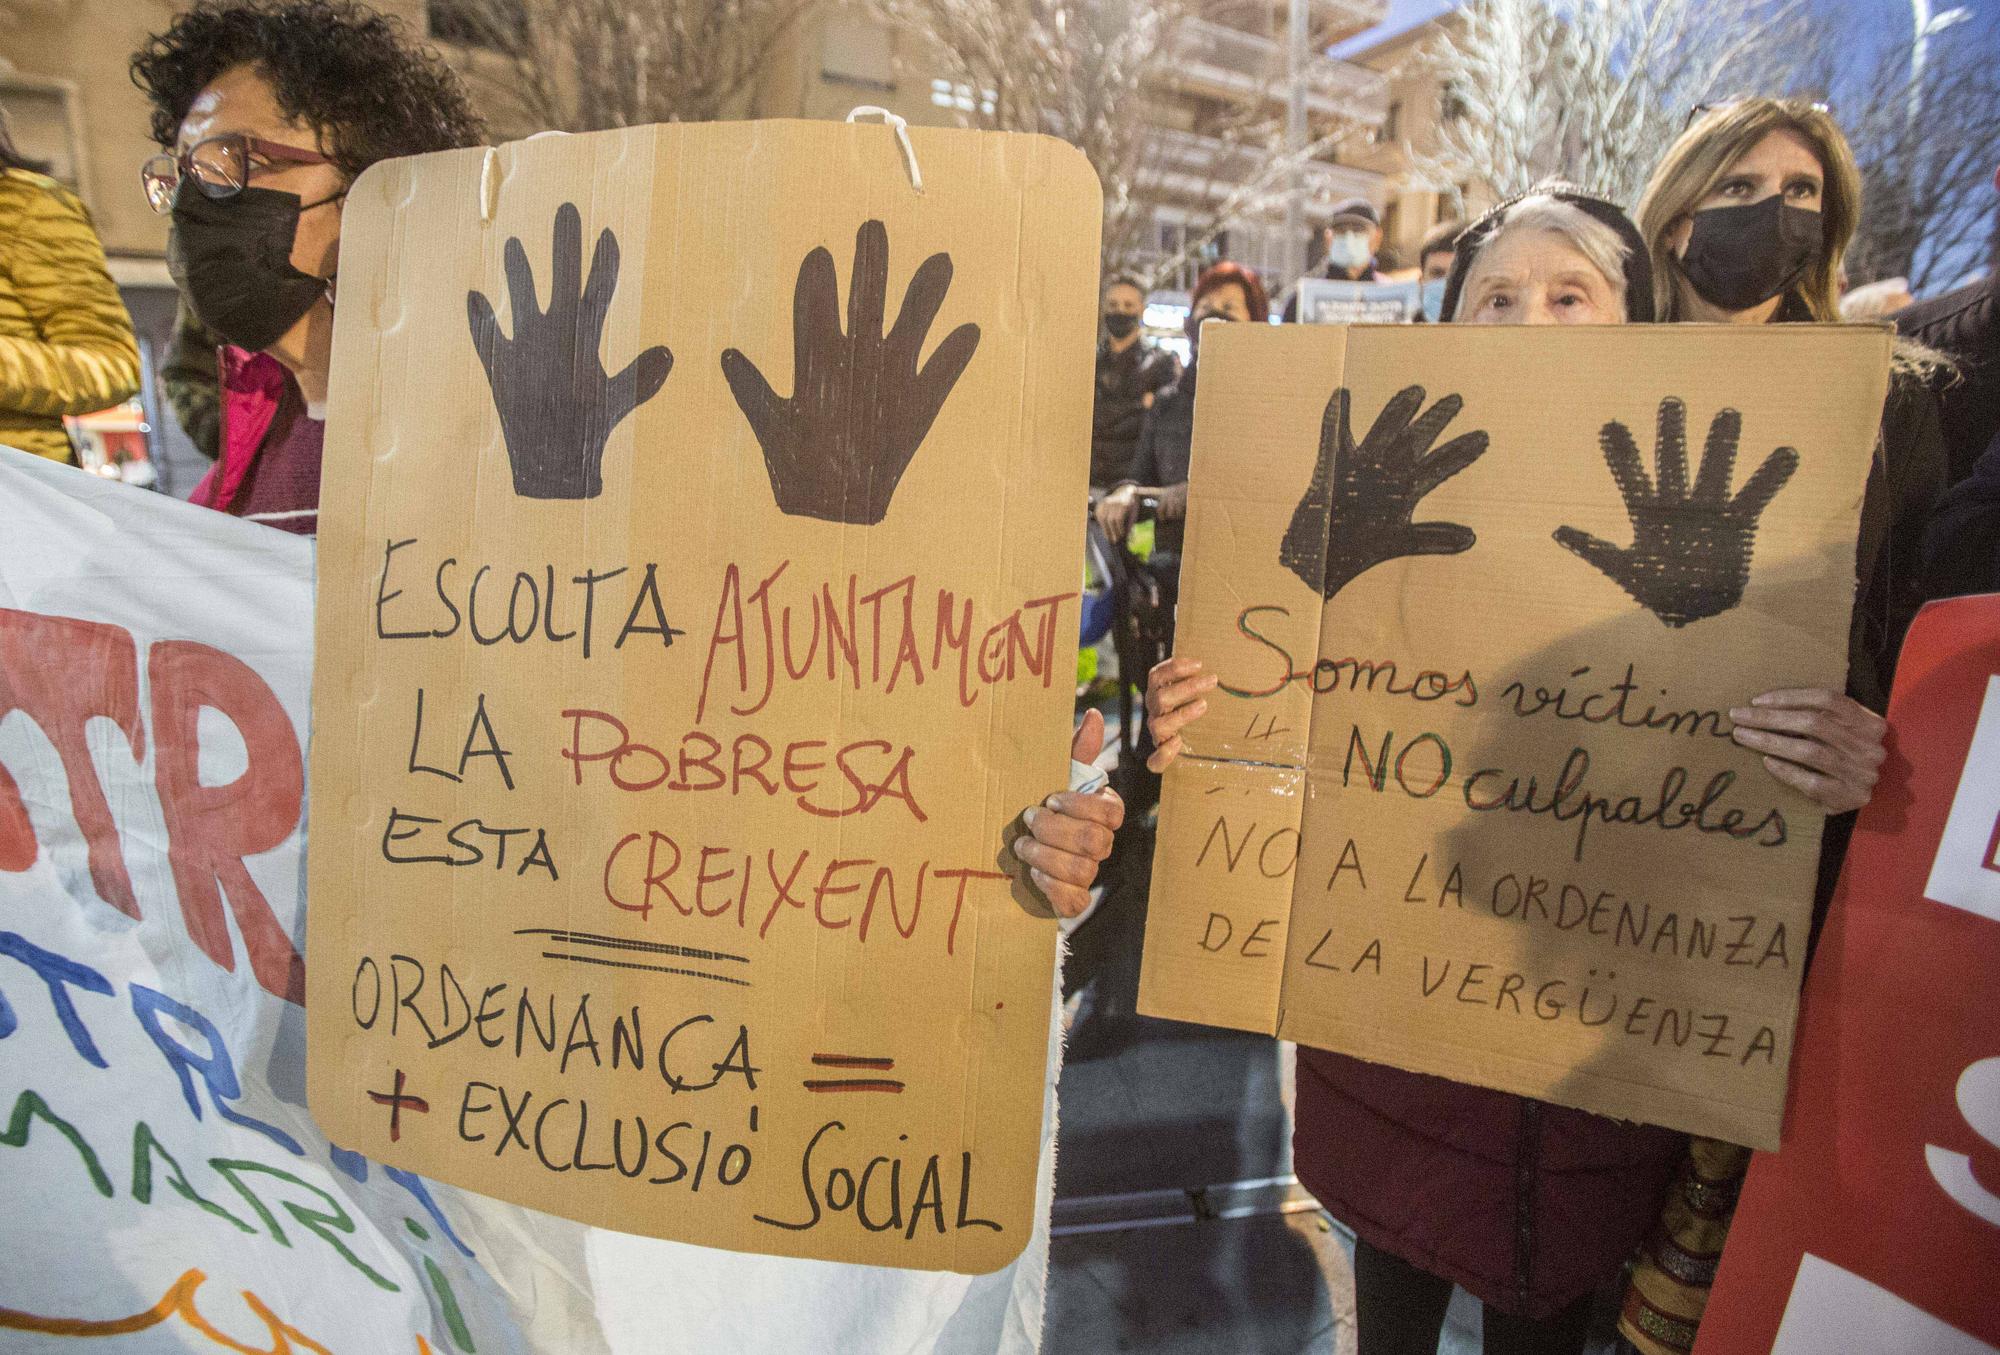 ESCOLTA AJUNTAMENT
LA POBRESA
ESTA CREIXENT
ORDENANÇA =
+ EXCLUSIÓ SOCIAL
Somos víctim
NO culpables
NO A LA ORDENANZA
DE LA VERGÜENZA